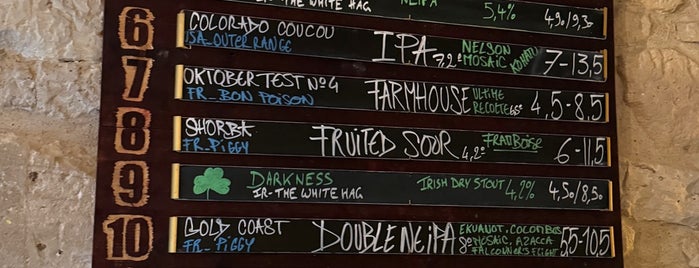 IR- THE WHITE HAG NEIPA 5,4% 4,90/9,30
6 COLORADO COUCOU IPA 7,2° NELSON MOSAIC KOHATU 7-13,5
USA_OUTER RANGE
7 OKTOBER TEST Nº4 FARMHOUSE ULTIME RECOLTE 4,5-8,5
FR_BON POISON
8 SHORBA FRUITED SOUR 4,2° FRAMBOISE 6-11,5
FR_PIGGY
9 DARKNESS IRISH DRY STOUT 4,2% 4,50/8,50
IR-THE WHITE HAG
10 GOLD COAST DOUBLE NEIPA 8° EKUANOT, COLOMBUS 5,5-10,5
FR_PIGGY MOSAIC, AZACCA
FALCONER'S FLIGHT